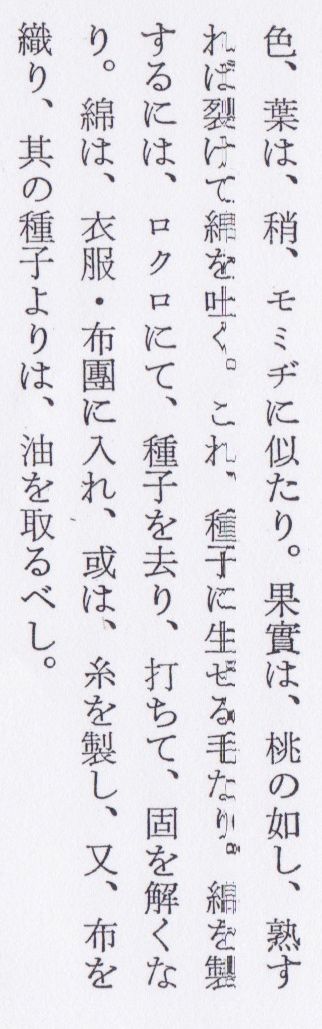 色、葉は、稍、モミヂに似たり。果實は、桃の如し、熟す
れば裂けて綿を吐く。これ、種子に生ぜる毛なり。綿を製
するには、ロクロにて、種子を去り、打ちて、固を解くな
り。綿は、衣服・布團に入れ、或は、糸を製し、又、布を
織り、其の種子よりは、油を取るべし。